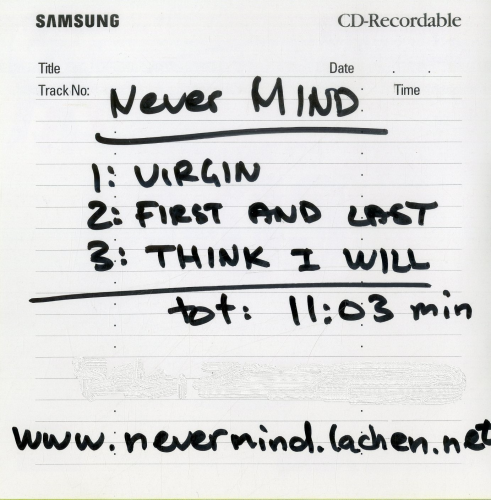 SAMSUNG CD-Recordable
Title Date . .
Track No: Never MIND Time
1: VIRGIN
2: FIRST AND LAST
3: THINK I WILL
tot: 11:03 min
www.nevermind.lachen.net